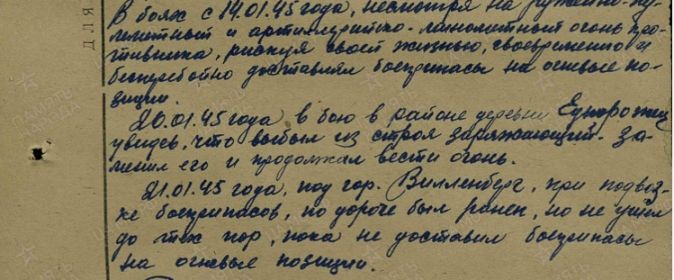 В боях с 14.01.45 года, несмотря на ружейно-пу-
лемётный и артиллерийско-миномётный огонь про-
тивника, рискуя своей жизнью, своевременно и
бесперебойно доставлял боеприпасы на огневые по-
зиции.
20.01.45 года в бою в районе деревни Еднорожец
увидев, что выбыл из строя заряжающий- за-
менил его и продолжал вести огонь.
21.01.45 года, под гор. Вилленберг, при подвоз-
ке боеприпасов, по дороге был ранен, но не ушёл
до тех пор, пока не доставил боеприпасы
на огневые позиции.
ДЛЯ